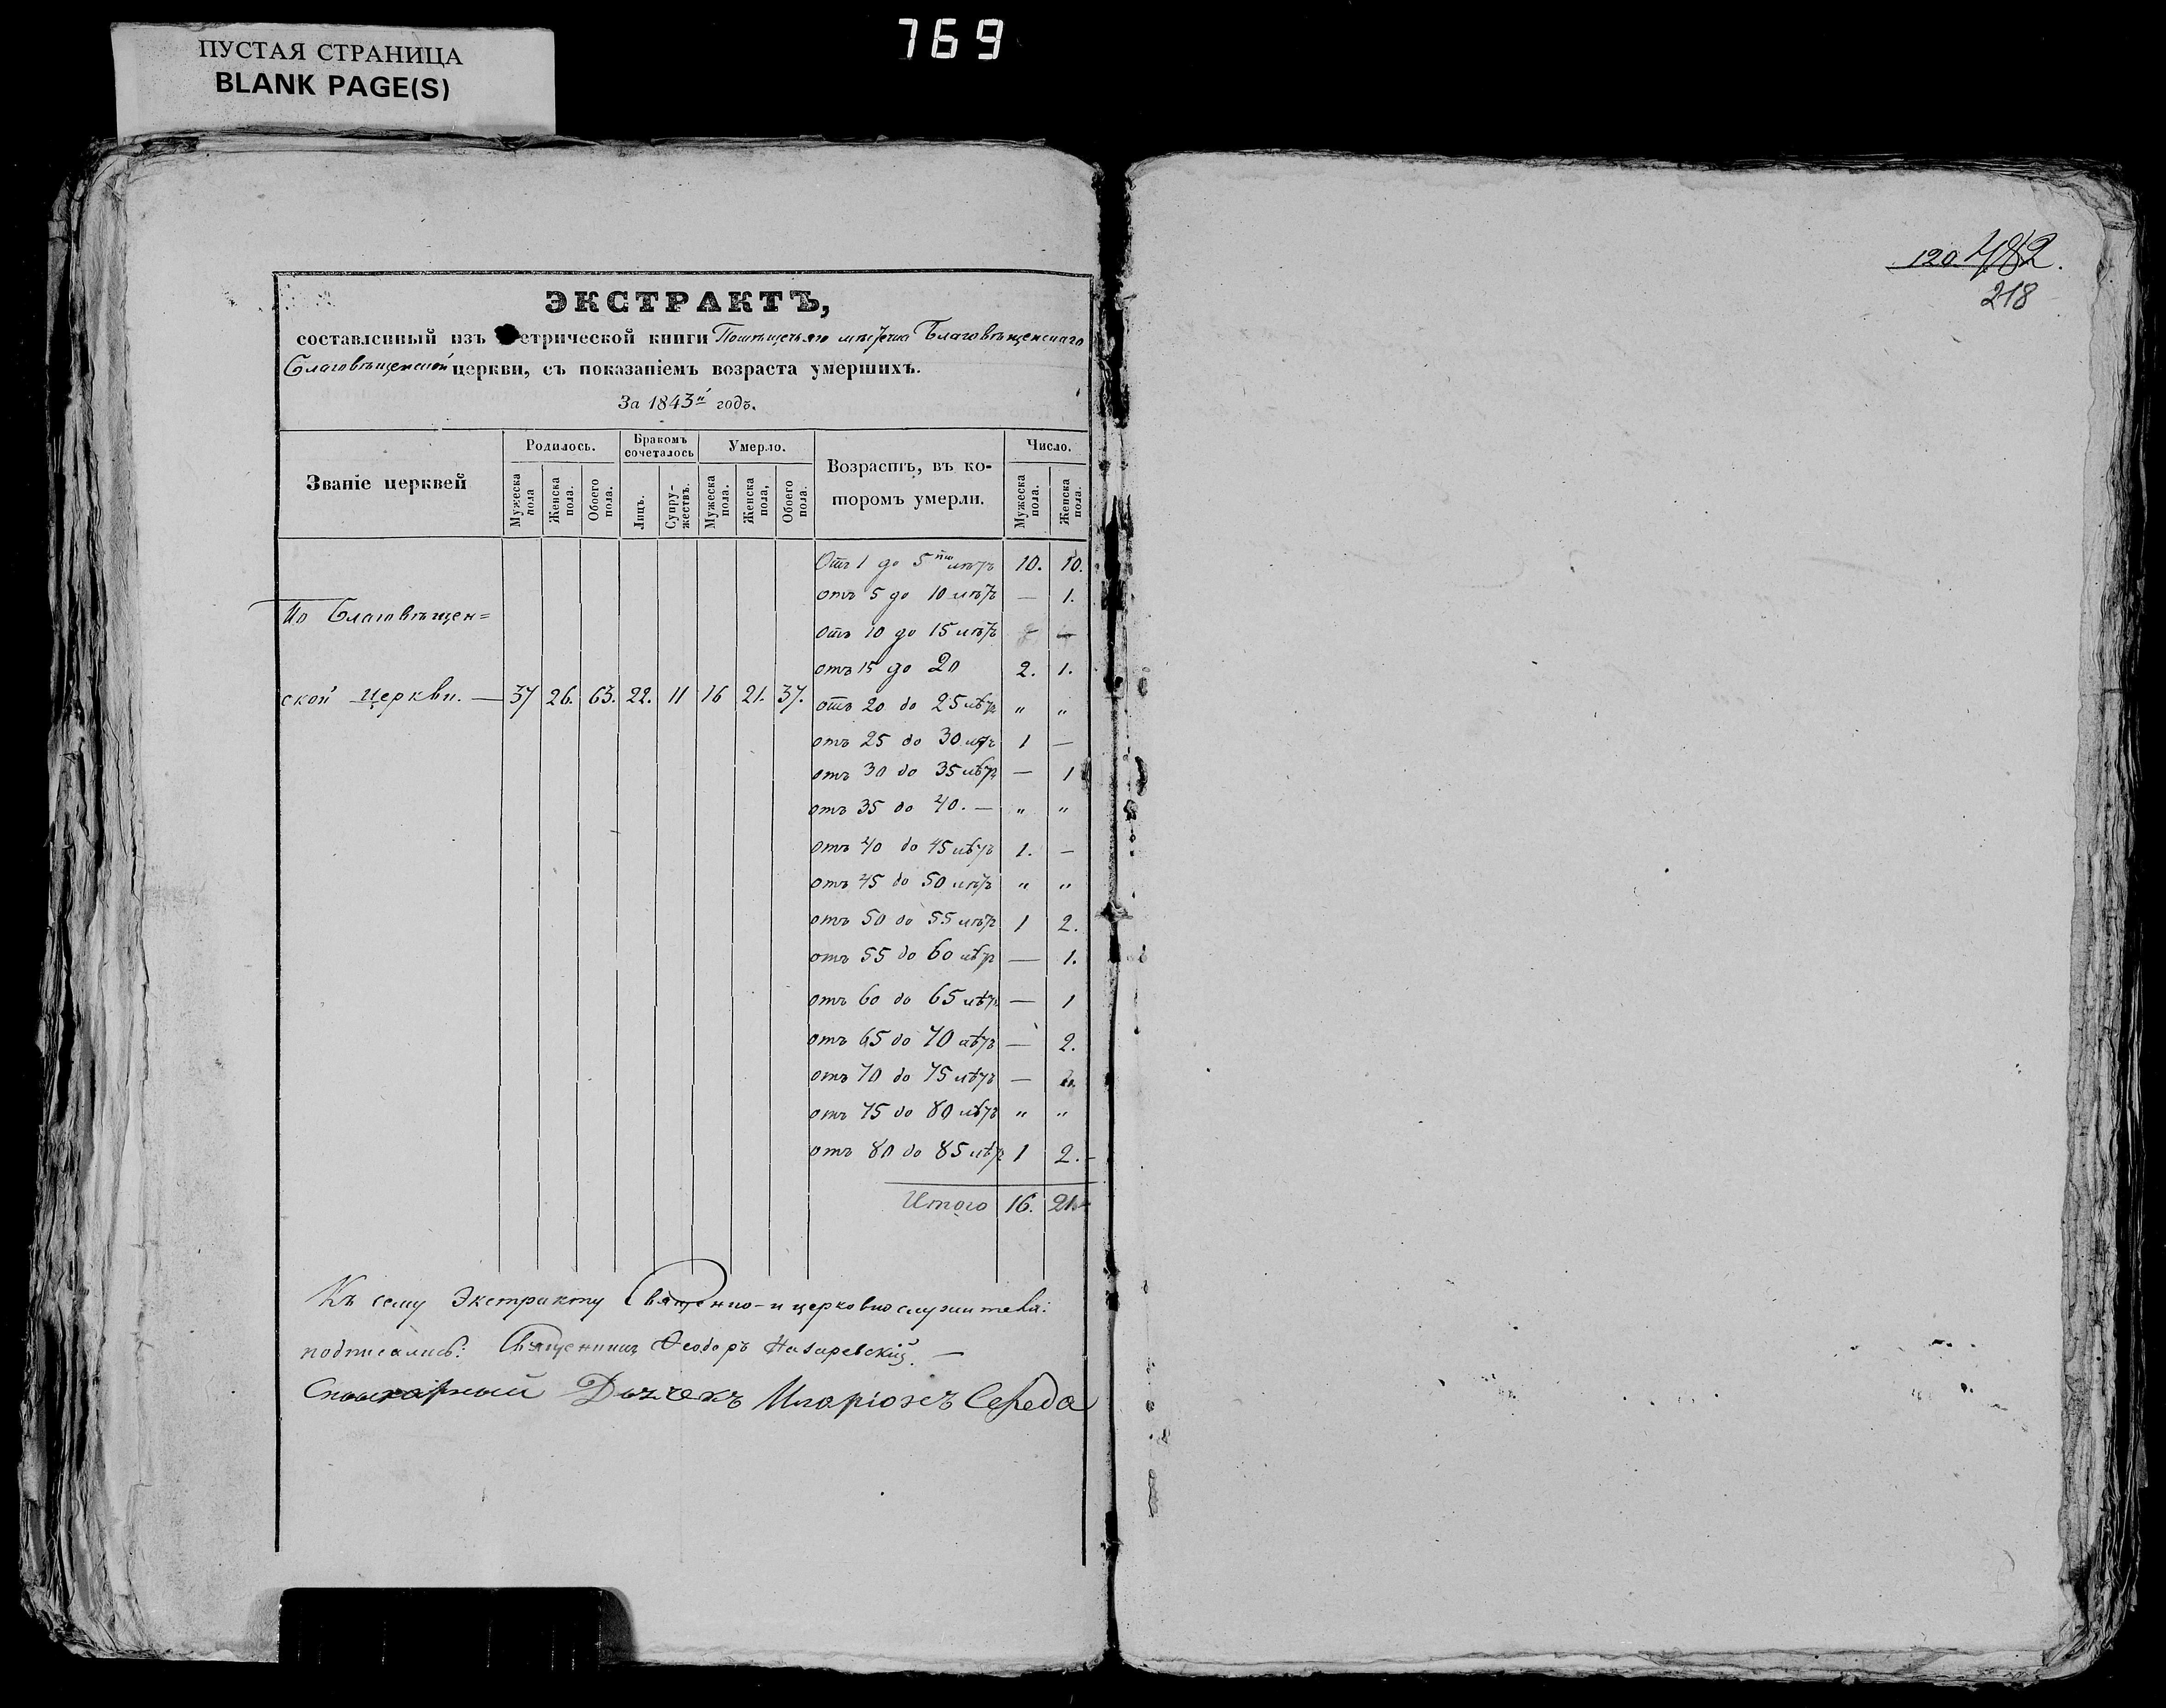 769
ПУСТАЯ СТРАНИЦА
BLANK PAGE(S)
120. 482.
218
ЭКСТРАКТЪ,
составленный изъ етрической книги Благовѣщенскаго
Благовѣщенской церкви, съ показаніемъ возраста умершихъ.
За 1843й годъ.
Званіе церквей
Родилось.
Мужеска пола
Женска пола.
Обоего пола.
Бракомъ сочеталось
Лицъ.
Супружествъ.
Умерло.
Мужеска пола.
Женска пола,
Обоего пола.
Возрастъ, въ ко-
торомъ умерли.
Число.
Мужеска пола.
Женска пола.
По Благовѣщен=
ской Церкви. — 37 26. 63. 22. 11 16 21. 37.
Отъ 1 до 5ти лѣтъ 10. 10.
отъ 5 до 10 лѣтъ — 1.
отъ 10 до 15 лѣтъ — —
отъ 15 до 20 2. 1.
отъ 20 до 25 лѣтъ " "
отъ 25 до 30 лѣтъ 1 —
отъ 30 до 35 лѣтъ — 1
отъ 35 до 40. — " "
отъ 40 до 45 лѣтъ 1. —
отъ 45 до 50 лѣтъ " "
отъ 50 до 55 лѣтъ 1 2.
отъ 55 до 60 лѣтъ — 1.
отъ 60 до 65 лѣтъ — 1
отъ 65 до 70 лѣтъ — 2.
отъ 70 до 75 лѣтъ —
отъ 75 до 80 лѣтъ " "
отъ 80 до 85 лѣтъ 1 2.—
Итого 16. 21.
Къ сему Экстракту Священно-и церковнослужители:
подписались: Священникъ Феодоръ Назаревскій. —
Дьячекъ Иларіонъ Середа